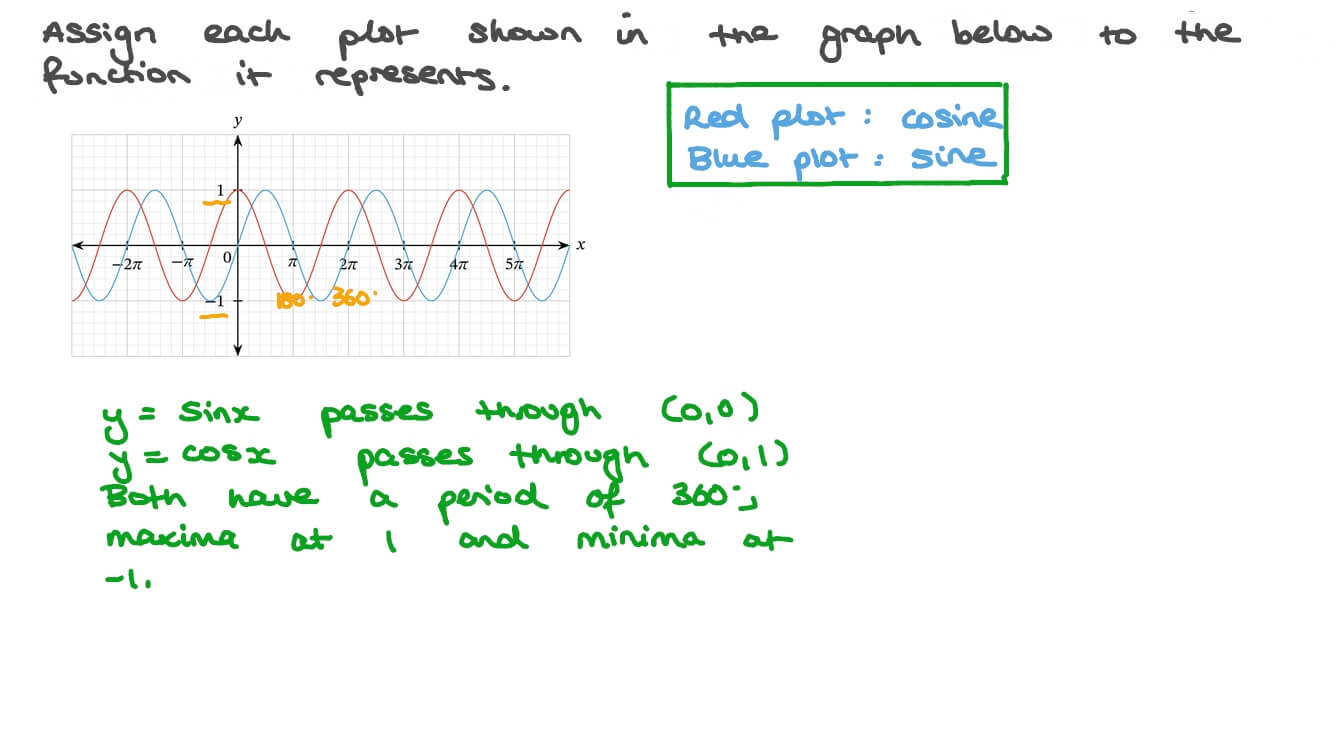 Assign each plot shown in the graph below to the
function it represents.
Red plot : cosine
Blue plot : sine
y
1
x
-2π -π 0 π 2π 3π 4π 5π
-1 180° 360°
y = sinx passes through (0,0)
y = cosx passes through (0,1)
Both have a period of 360°,
maxima at 1 and minima at
-1.